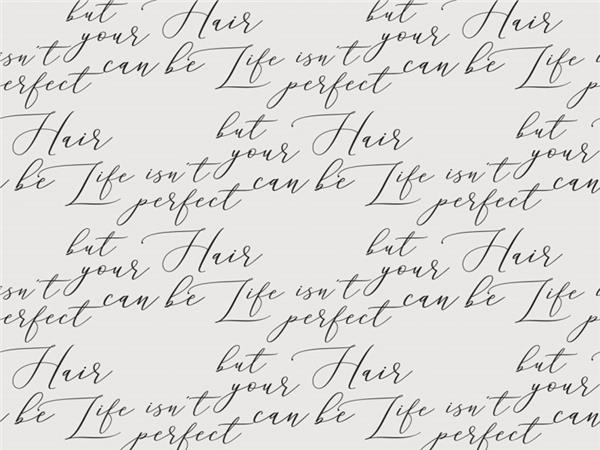 but Hair but Hair
your your
sn't can be Life isn't can be Life i
erfect perfect pe
Hair but Hair but
your your
be Life isn't can be Life isn't can
perfect perfect
but Hair but Hair
your your
sn't can be Life isn't can be Life i
erfect perfect pe
Hair but Hair but
your your
be Life isn't can be Life isn't can
perfect perfect